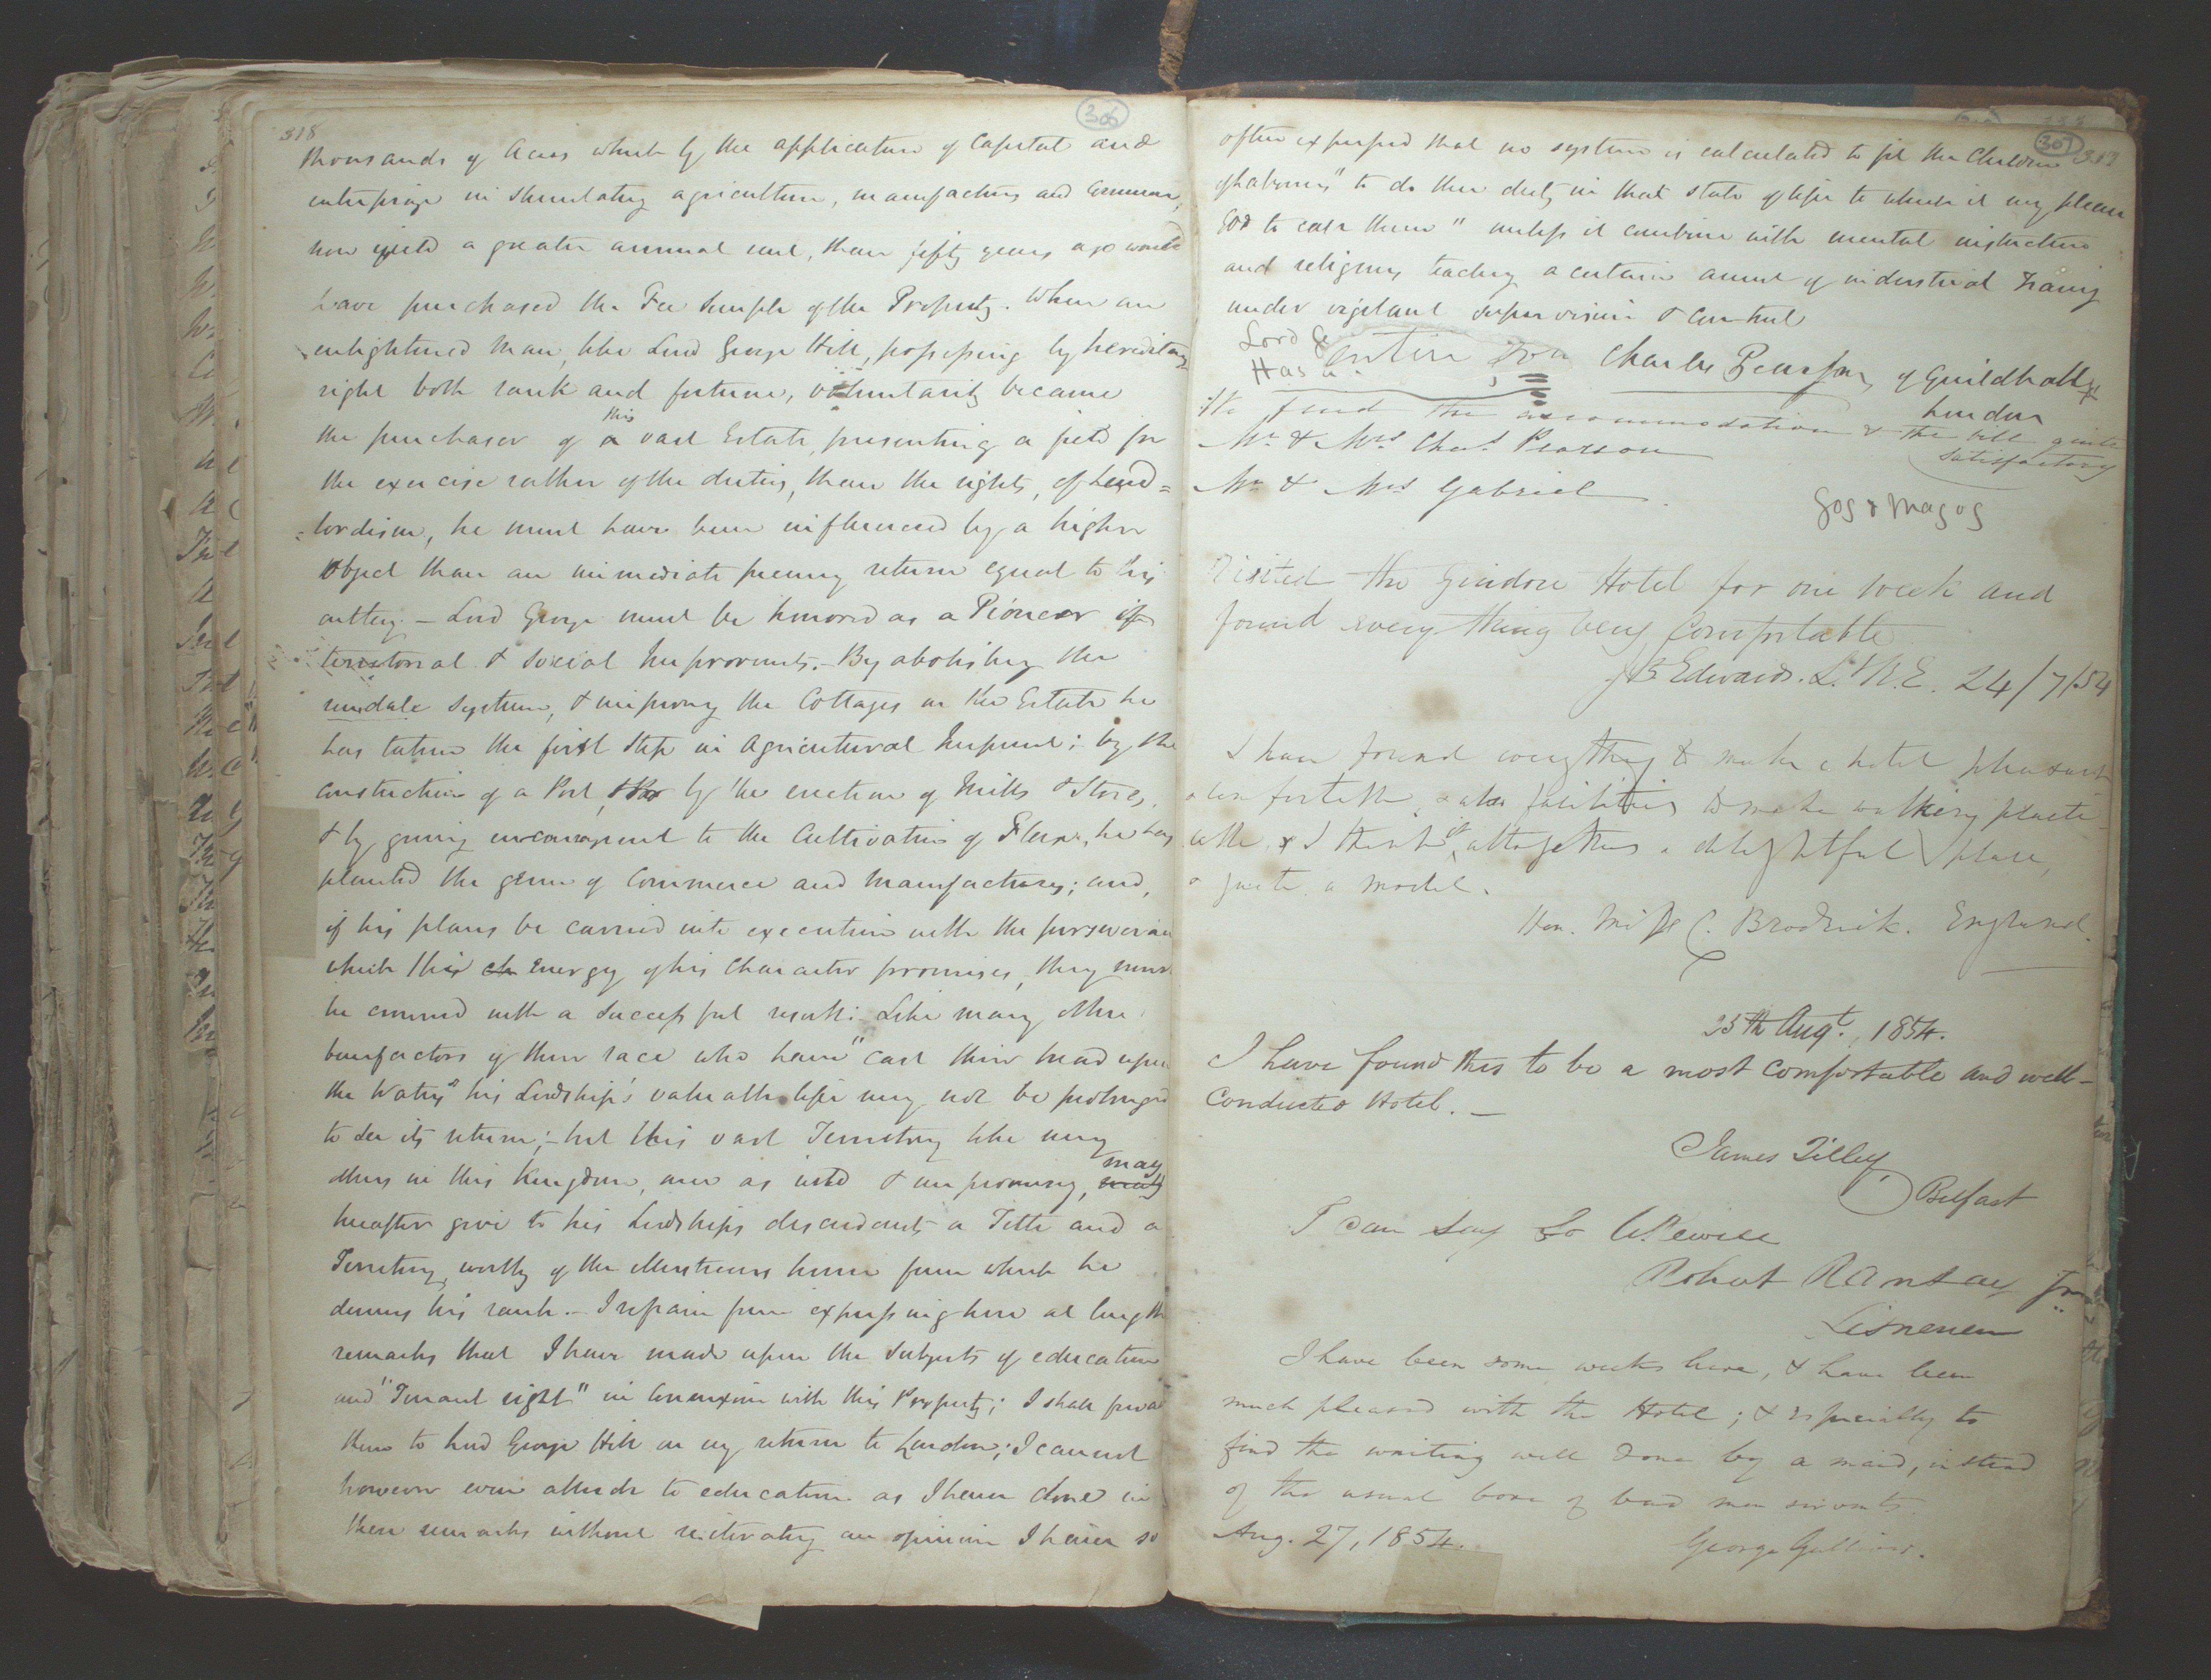 318
306
thousands of Acres which by the application of Capital and
enterprize in stimulating agriculture, manufactures and Commerce,
now yield a greater annual rent, than fifty years ago would
have purchased the Fee Simple of the Property. When an
enlightened Man, like Lord George Hill, possessing by hereditary
right both rank and fortune, voluntarily became
the purchaser of a this vast Estate, presenting a field for
the exercise rather of the duties, than the rights, of Land=
=lordism, he must have been influenced by a higher
object than an immediate pecuny return equal to his
outlay – Lord George must be honored as a Pioneer of
territorial & social Improvements. – By abolishing the
rundale system, & improving the Cottages on the Estate he
has taken the first step in Agricultural Improvmt: by the
construction of a Port, by the erection of Mills & Stores,
& by giving encouragement to the Cultivation of Flax, he has
planted the germ of Commerce and Manufactures; and,
if his plans be carried into execution with the perseverance
which this ch Energy of his Character promises, they must
be crowned with a successful result: Like many other
benefactors of their race who have "cast their bread upon
the Waters" his Lordship's valuable life may not be prolonged
to see its return; – but this vast Territory like many
others in this Kingdom, once as wild & unpromising, may
hereafter give to his Lordships descendants a Title and a
Territory, worthy of the illustrious house from which he
derives his rank. – I refrain from expressing here at length
remarks that I have made upon the Subjects of education
and "Tenant right" in Connexion with this Property; I shall forward
them to Lord George Hill on my return to London; I cannot
however even allude to education as I have done in
these remarks without reiterating an opinion I have so
307
319
often expressed that no system is calculated to fit the Children
of Labourers "to do their duty in that state of life to which it may please
God to call them" unless it combine with mental instruction
and religious teaching a certain amount of industrial training
under vigilant supervision & Control
Lord Ge
Has a entire Charles Pearson, of Guildhall
London
We find the accommodation & the bill quite
satisfactory
Mr. & Mrs. Chas. Pearson
Mr & Mrs Gabriel
Gog & Magog
Visited the Gweedore Hotel for one week and
found everything very Comfortable
J B Edwards. Lt R.E. 24/7/54
I have found everything to make a hotel pleasant
& comfortable, & also facilities to make walking practi-
cable, & I think it altogether a delightful place,
& quite a model.
Hon. Miss C. Brodrick. England.
25th Augt., 1854.
I have found this to be a most comfortable and well-
Conducted Hotel. –
James Tilley,
Belfast
I can say so likewise
Robert Ramsay Jnr
I have been some weeks here, & have been
much pleased with the Hotel; & especially to
find the waiting well done by a maid, instead
of the usual bore of bad men servants.
Aug. 27, 1854.
George Gulliver.